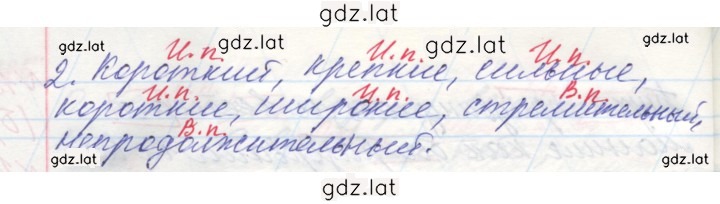 gdz.lat
gdz.lat gdz.lat
И. п. И. п. И. п.
2. Короткий, крепкие, сильные,
И. п. И. п. В. п.
короткие, широкие, стремительный,
В. п.
непродолжительный.
gdz.lat gdz.lat gdz.lat
gdz.lat